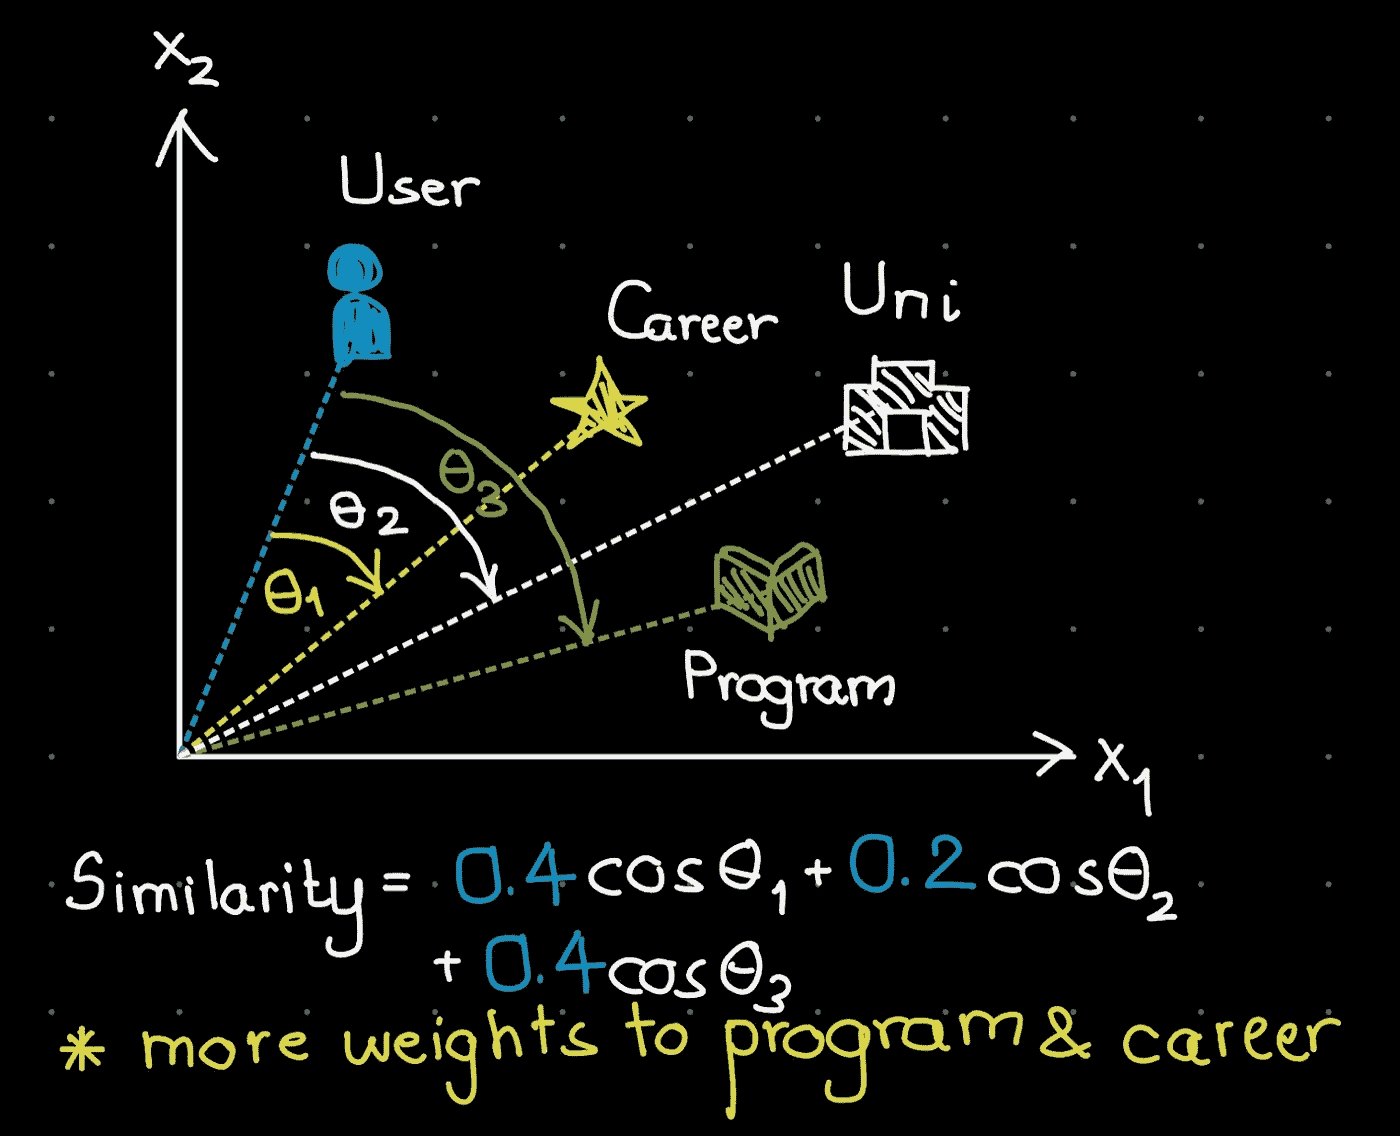 X2
User
Career
Uni
θ3
θ2
θ1
Program
X1
Similarity = 0.4 cosθ1 + 0.2 cosθ2
+ 0.4 cosθ3
* more weights to program & career